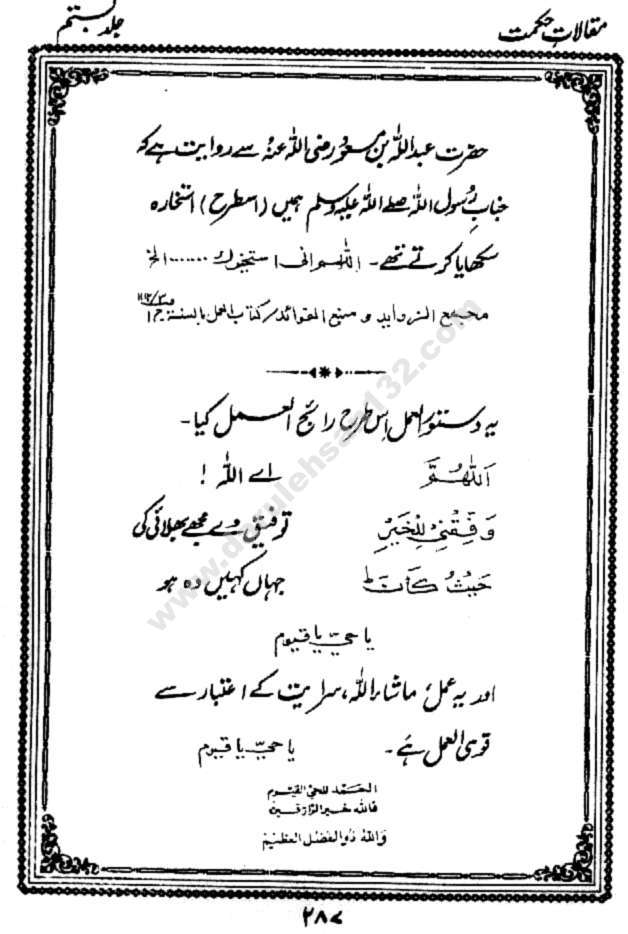 مقالاتِ حکمت
جلد بستم
حضرت عبداللہ بن مسعود رضی اللہ عنہٗ سے روایت ہے کہ
جنابِ رسول اللہ صلے اللہ علیہ وسلم ہمیں (اسطرح) استخارہ
سکھایا کرتے تھے۔ اللھم انی استخیرک ....... الخ
مجمع الزوائد و منبع الفوائد کتاب العمل بالسنۃ ج ۱
یہ دستورُ العمل اِس طرح رائج العمل کیا۔
اَللّٰھُمَّ اے اللہ !
وَفِّقْنِیْ لِلْخَیْرِ توفیق دے مجھے بھلائی کی
حَیْثُ کَانَ ط جہاں کہیں وہ ہو
یا حیّ یا قیوم
اور یہ عمل، ماشاء اللہ، سرایت کے اعتبار سے
قوی العمل ہے۔ یا حیّ یا قیوم
الحَمَد للحیّ القیّوم
فاللہ خیر الرّازقین
وَاللہُ ذُوالفَضْل العَظِیْم
۲۸۷
www.darulehsan132.com